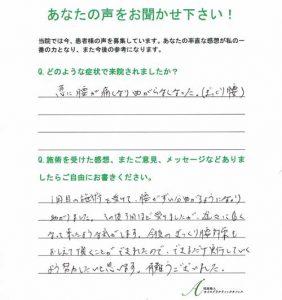 あなたの声をお聞かせ下さい！
当院では今、患者様の声を募集しています。あなたの率直な感想が私の一
番の力となり、また今後の参考になります。
Q.どのような症状で来院されましたか？
急に腰が痛くなり曲がらなくなった。(ぎっくり腰)
Q.施術を受けた感想、またご意見、メッセージなどありま
したらご自由にお書きください。
1回目の施術を受けて、腰がずい分曲がるようになり
助かりました。その後3回ほど受けましたが、徐々に良く
なって来たような気がします。今後のぎっくり腰対策も
おしえて頂くことができたので、できるだけ実行していく
よう努力したいと思います。有難うございました。